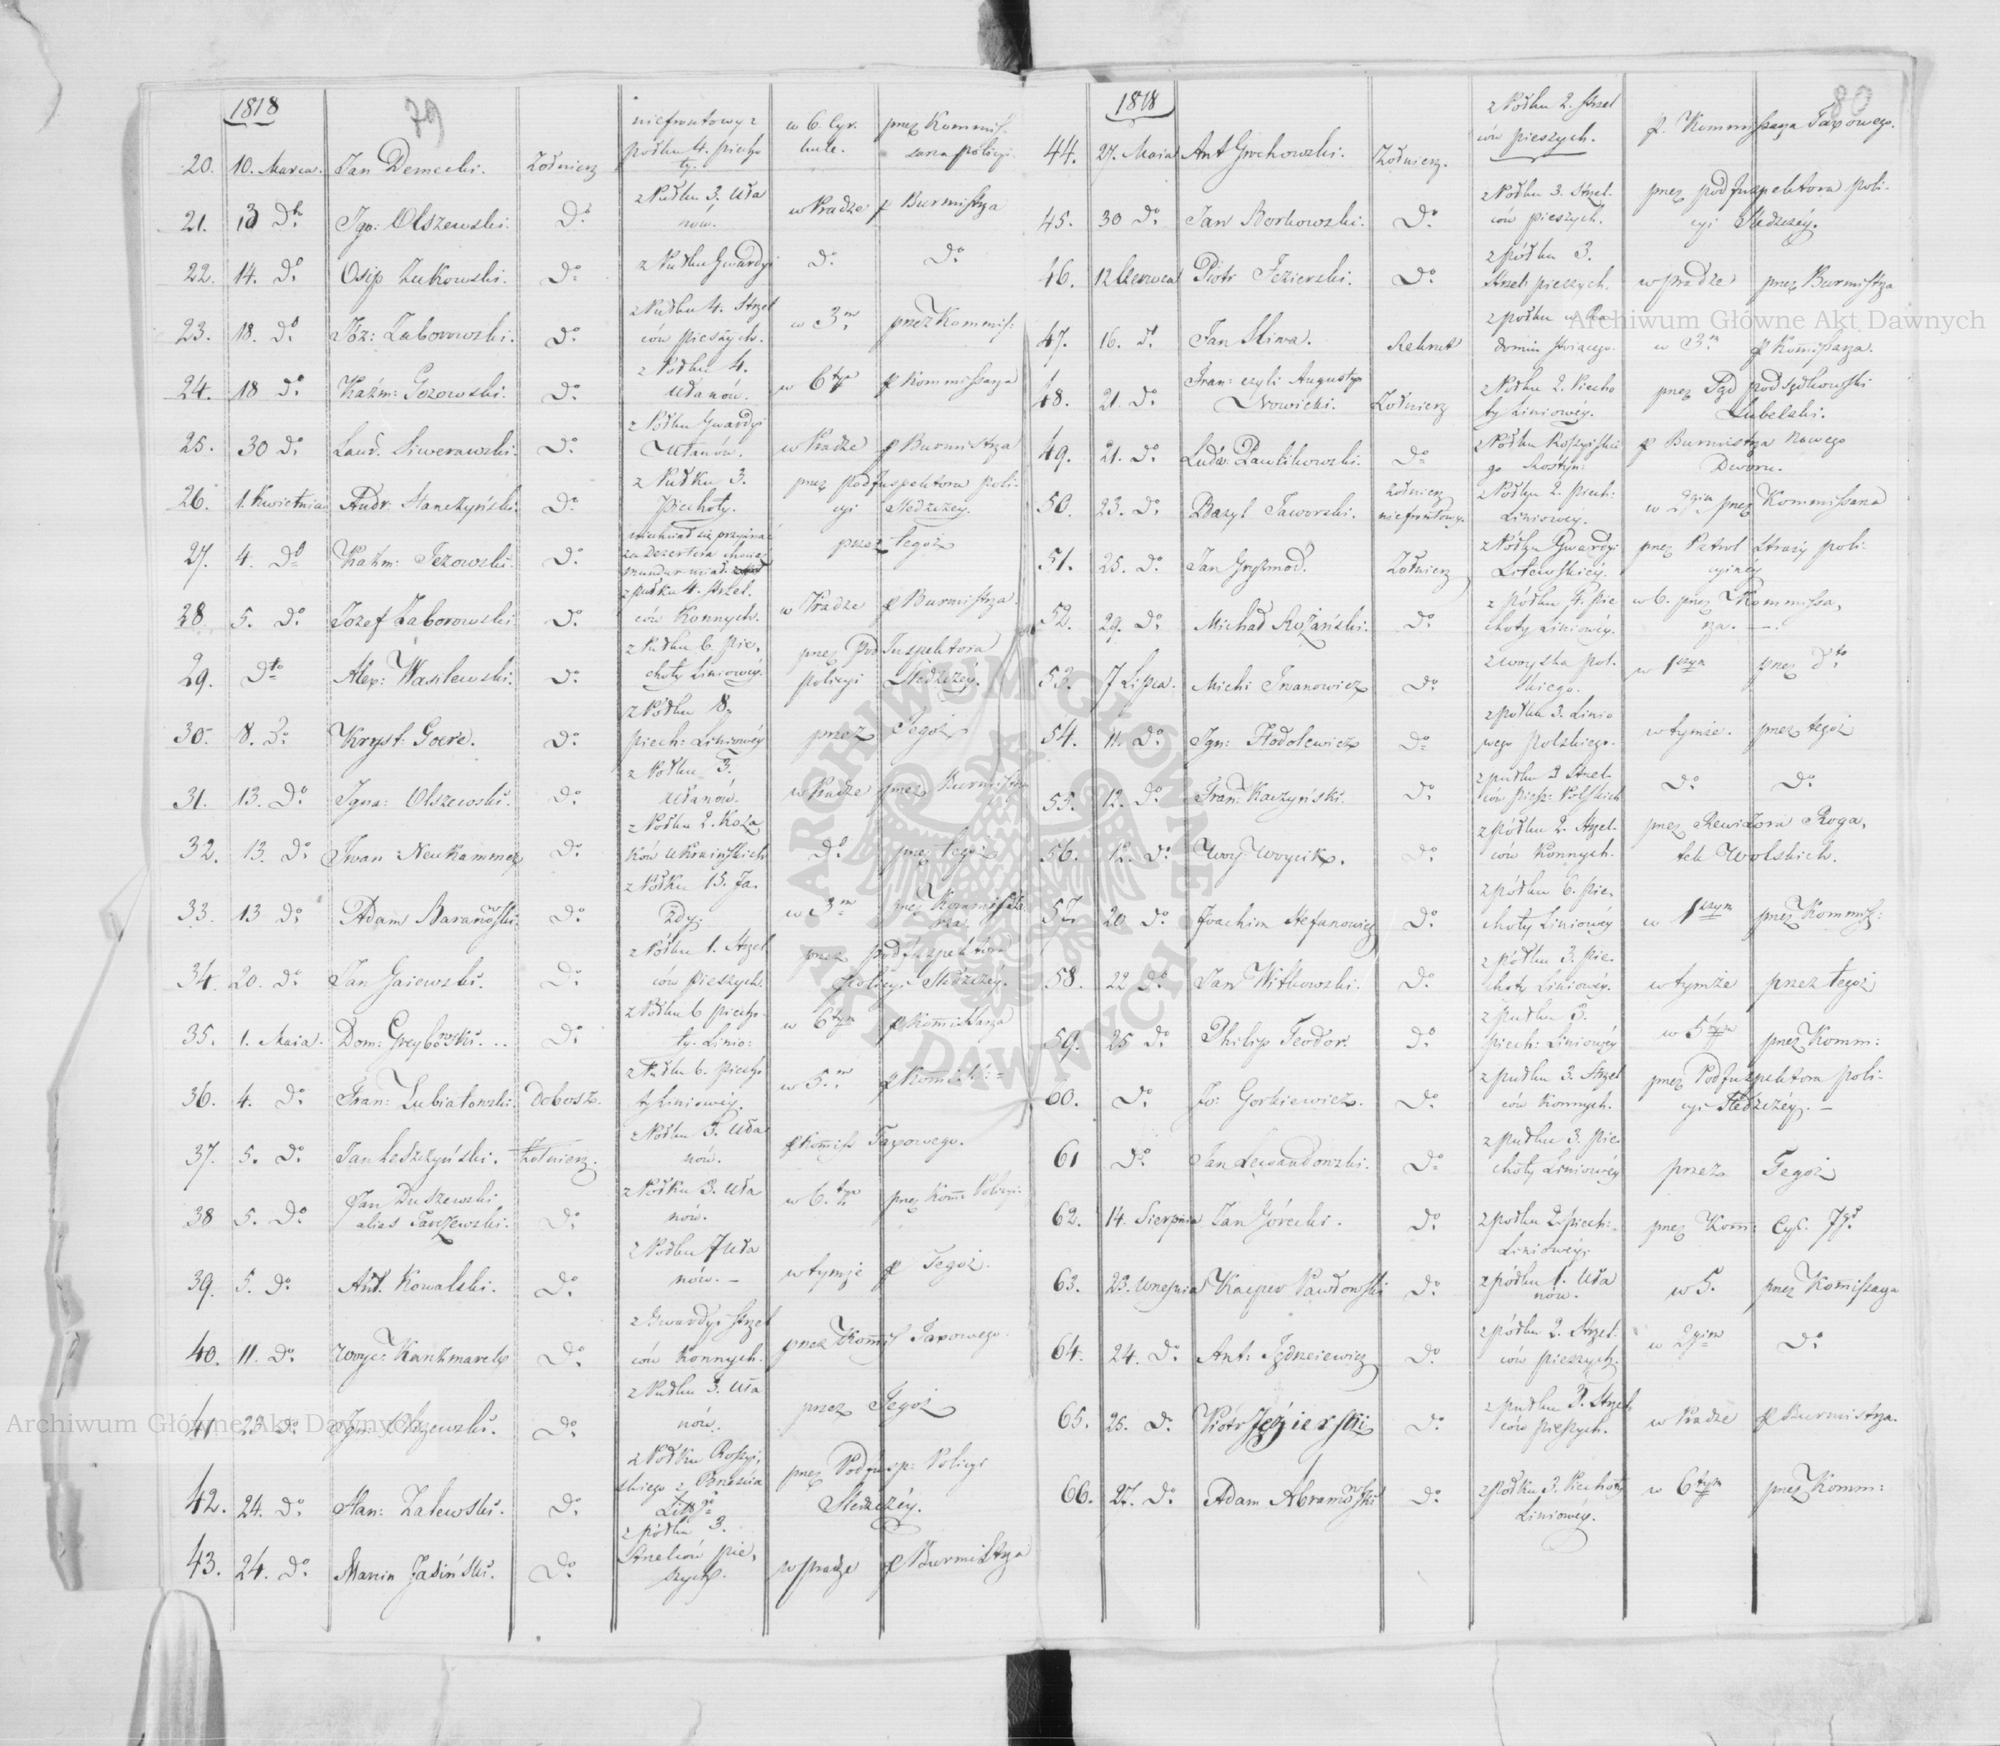 1818
79
20. 10. Marca. Jan Demecki. Żołnierz niefrontowy z Półku 4. Piechoty. w 6. Cyrkule. przez Kommissarza Policyi.
21. 13 Do Igo: Olszewski. Do z Pułku 3. Ułanów. w Pradze p Burmistrza
22. 14. Do Osip Zukowski. Do z Pułku Gwardyi Do Do
23. 18. Do Józ: Zaborowski. Do z Pułku 4. Strzelców pieszych. w 3m przez Kommiss:
24. 18 Do Kaźm: Gozowski. Do z Półku 4. Ułanów. w 6tym p Kommissarza
25. 30 Do Laud. Siwerawski. Do z Półku Gwardyi Ułanów. w Pradze p Burmistrza
26. 1. Kwietnia Andr. Stanczyński. Do z Pułku 3. Piechoty. przez podInspektora policyi Śledczéy.
27. 4. Do Kaźm: Jezowski. Do niechciał się przyznać za Dezertera chociaz mundur miał przez tegoż
28 5. Do Jozef Zaborowski Do z pułku 4. Strzelców Konnych. w Pradze p Burmistrza.
29. Dto Alex: Wasilewski. Do z Pułku 6. Piechoty Liniowéy. przez PodInspektora policyi Śledczéy.
30. 8. Do Kryst. Goere. Do z Półku 8. piech: Liniowéy przez Tegoż
31. 13. Do Igna: Olszewski. Do z Półku 3. Ułanów. w Pradze przez Burmistrza
32. 13. Do Iwan Neukammer Do z Półku 2. Kozaków Ukraińskich Do przez tegoż
33. 13 Do Adam Baranowski. Do z Półku 15. Jazdy. w 3m przez Kommissarza
34. 20. Do Jan Gaiewski. Do z Półku 1. Strzelców Pieszych. przez podInspektora Policyi Śledczéy.
35. 1. Maia. Dom: Greybowski. .. Do z Półku 6 Piechoty. Linio: w 6tym p Kommissarza
36. 4. Do Fran: Lubiatowski. Dobosz. z Pułku 6. Piechoty Liniowéy. w 5m p Kommiss:
37. 5. Do Jan Leszczyński. Żołnierz. z Półku 3. Ułanów. p Kommiss Taxowego.
38 5. Do Jan Duszewski alias Tarczewski. Do z Półku 3. Ułanów. w 6.tym przez Komm: Policyi:
39. 5. Do Ant. Kowalski. Do z Półku 7 Ułanów. – w tymże p Tegoż.
40. 11. Do Woyc: Kaczmarek Do z Gwardyi Strzelców Konnych. przez Kommiss Taxowego.
41 23 Do Ign: Olszewski. Do z Pułku 3. Ułanów. przez Tegoż
42. 24. Do Stan: Zalewski. Do z Półku Rossyiskiego z Litgo przez PodInsp: Policyi Śledczéy.
43. 24. Do Marcin Jasiński. Do z półku 3. Strzelców pieszych. w pradze p Burmistrza
1818
80
44. 27. Maia Ant Grochowski. Żołnierz. z Półku 2. Strzelców pieszych. p. Kommissarza Taxowego.
45. 30 Do Jan Borkowski. Do z Półku 3. Strzelców pieszych. przez podInspektora policyi Śledczéy.
46. 12 Czerwca Piotr Jezierski. Do z półku 3. Strzel: pieszych. w pradze przez Burmistrza
47. 16. Do Jan Sliwa. Rekrut z półku w Radomiu stoiącego. w 3m p Komissarza.
48. 21. Do Fran: czyli Augustyn Nowicki. Żołnierz z Półku 2. Piechoty Liniowéy. przez Sąd podsędkowski Lubelski.
49. 21. Do Ludw: Pawlikowski. Do z Półku Rossyiskiego p Burmistrza Nowego Dworu.
50. 23. Do Bazyl Jaworski. żołnierz niefrontowy. z Półku 2. piech: Liniowéy. w 2gim przez Kommissarza
51. 25. Do Jan Grysmod. Żołnierz z Półku Gwardyi Litewskiéy. przez Patrol Straży policyiney
52. 29. Do Michał Rożański. Do z Półku 4. Piechoty Liniowéy. w 6. przez Kommissarza. –
53. 7 Lipca. Micha Iwanowicz Do z woyska Polskiego. w 1szym przez Dto
54. 11. Do Ign: Hodolewicz Do z półku 3. Liniowego polskiego. w tymże. przez tegoż
55. 12. Do Fran: Kaczyński. Do z pułku 3 Strzelców piesz: Polskich Do Do
56. 12. Do Woy: Woycik. Do z półku 2. Strzelców Konnych. przez Rewizora Rogatek Wolskich.
57 20 Do Joachim Stefanowicz Do z półku 6. Piechoty Liniowéy w 1szym przez Kommiss:
58. 22 Do Jan Witkowski. Do z półku 3. Piechoty Liniowéy. w tymże przez tegoż
59. 25 Do Philip Teodor. Do z pułku 3. Piech: Liniowéy w 5tym przez Komm:
60. Do Jo: Gorkiewicz. Do z pułku 3. Strzelców Konnych. przez PodInspektora policyi Śledczéy. –
61 Do Jan Lewandowski. Do z pułku 3. Piechoty Liniowéy przez Tegoż
62. 14. Sierpnia Jan Górecki. Do z półku 2. piech: Liniowéy. przez Kom: Cyr. 7go.
63. 23. Września Kacper Pawłowski Do z półku 1. Ułanów. w 5. przez Komissarza
64. 24. Do Ant: Do z półku 2. Strzelców pieszych. w 2gim Do
65. 25. Do Piotr Jezierski Do z pułku 3. Strzelców pieszych. w Pradze p Burmistrza.
66. 27. Do Adam Abramowski Do z Półku 3. Piechoty Liniowéy. w 6tym przez Komm:
Archiwum Główne Akt Dawnych
Archiwum Główne Akt Dawnych
ARCHIWUM GŁÓWNE AKT DAWNYCH